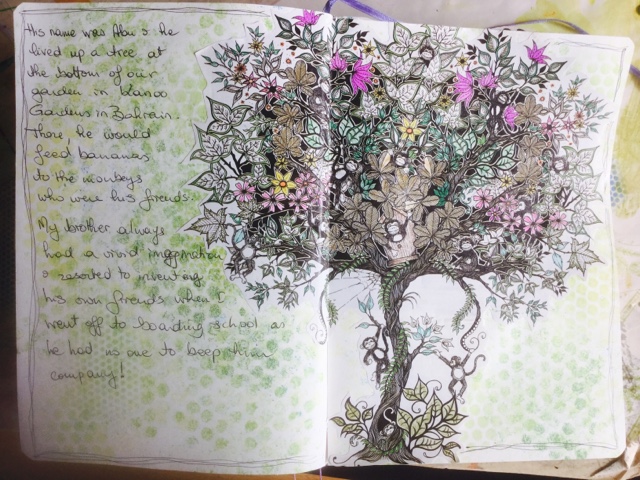 His name was Abu & he
lived up a tree at
the bottom of our
garden in Kanoo
Gardens in Bahrain.
There he would
feed bananas
to the monkeys
who were his friends.
My brother always
had a vivid imagination
& resorted to inventing
his own friends when I
went off to boarding school as
he had no one to keep him
company!